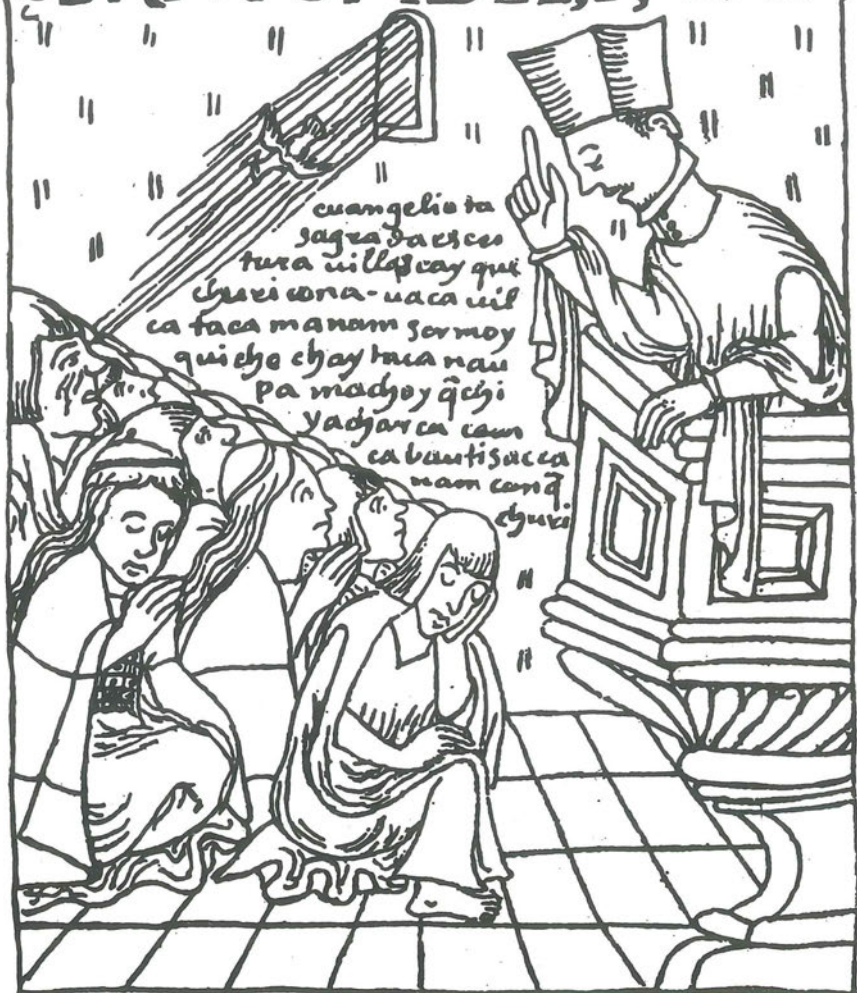 euangeliota
sagrada escri
tura uillascayque
churicona - uaca uil
cataca manam sermoy
quicho chaytaca nau
pa machoyq̃chi
yacharca cam
ca bautisacca
nam canq̃
churi